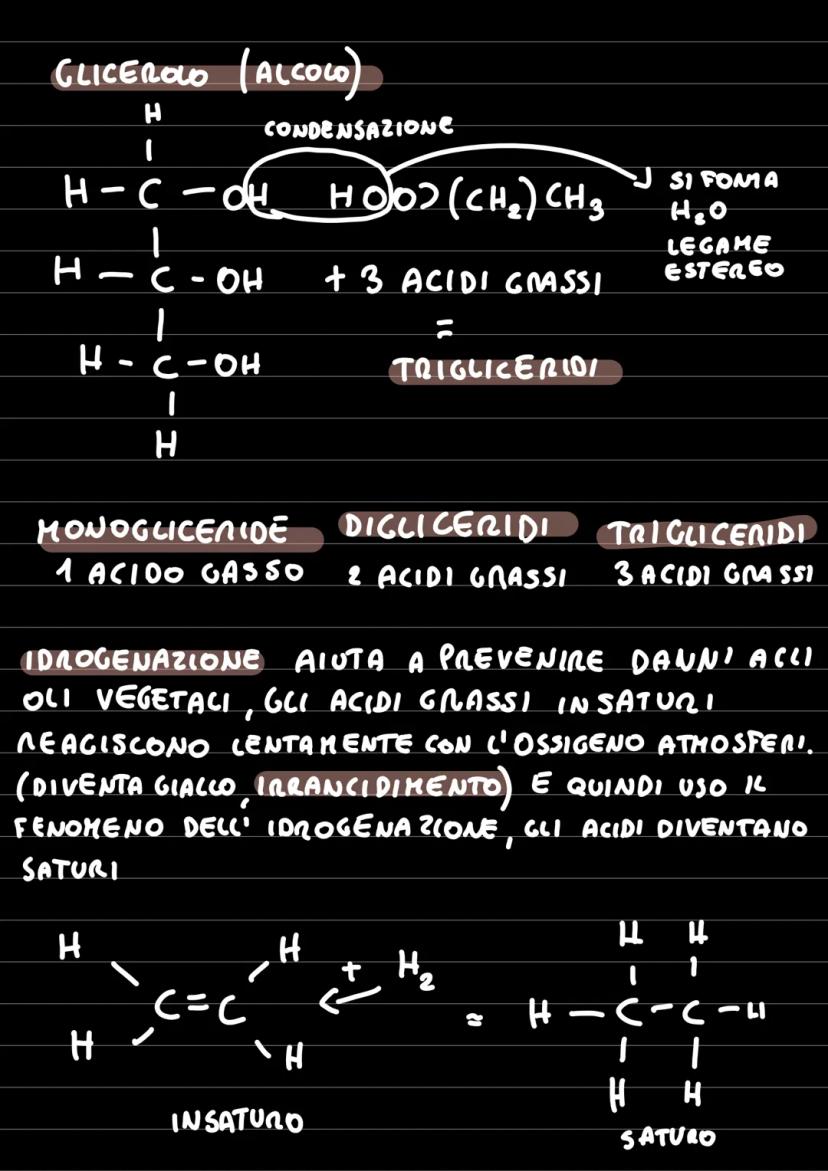 GLICEROLO (ALCOLO)
H
CONDENSAZIONE
H - C - OH HOOC(CH2)CH3
SI FORMA
H2O
LEGAME
ESTEREO
H - C - OH + 3 ACIDI GRASSI
=
H - C - OH TRIGLICERIDI
H
MONOGLICERIDE DIGLICERIDI TRIGLICERIDI
1 ACIDO GASSO 2 ACIDI GRASSI 3 ACIDI GRASSI
IDROGENAZIONE AIUTA A PREVENIRE DANNI AGLI
OLI VEGETALI, GLI ACIDI GRASSI INSATURI
REAGISCONO LENTAMENTE CON L'OSSIGENO ATMOSFERI.
(DIVENTA GIALLO, IRRANCIDIMENTO) E QUINDI USO IL
FENOMENO DELL' IDROGENAZIONE, GLI ACIDI DIVENTANO
SATURI
H H + H2 H H
C=C = H - C - C - H
H H H H
INSATURO SATURO